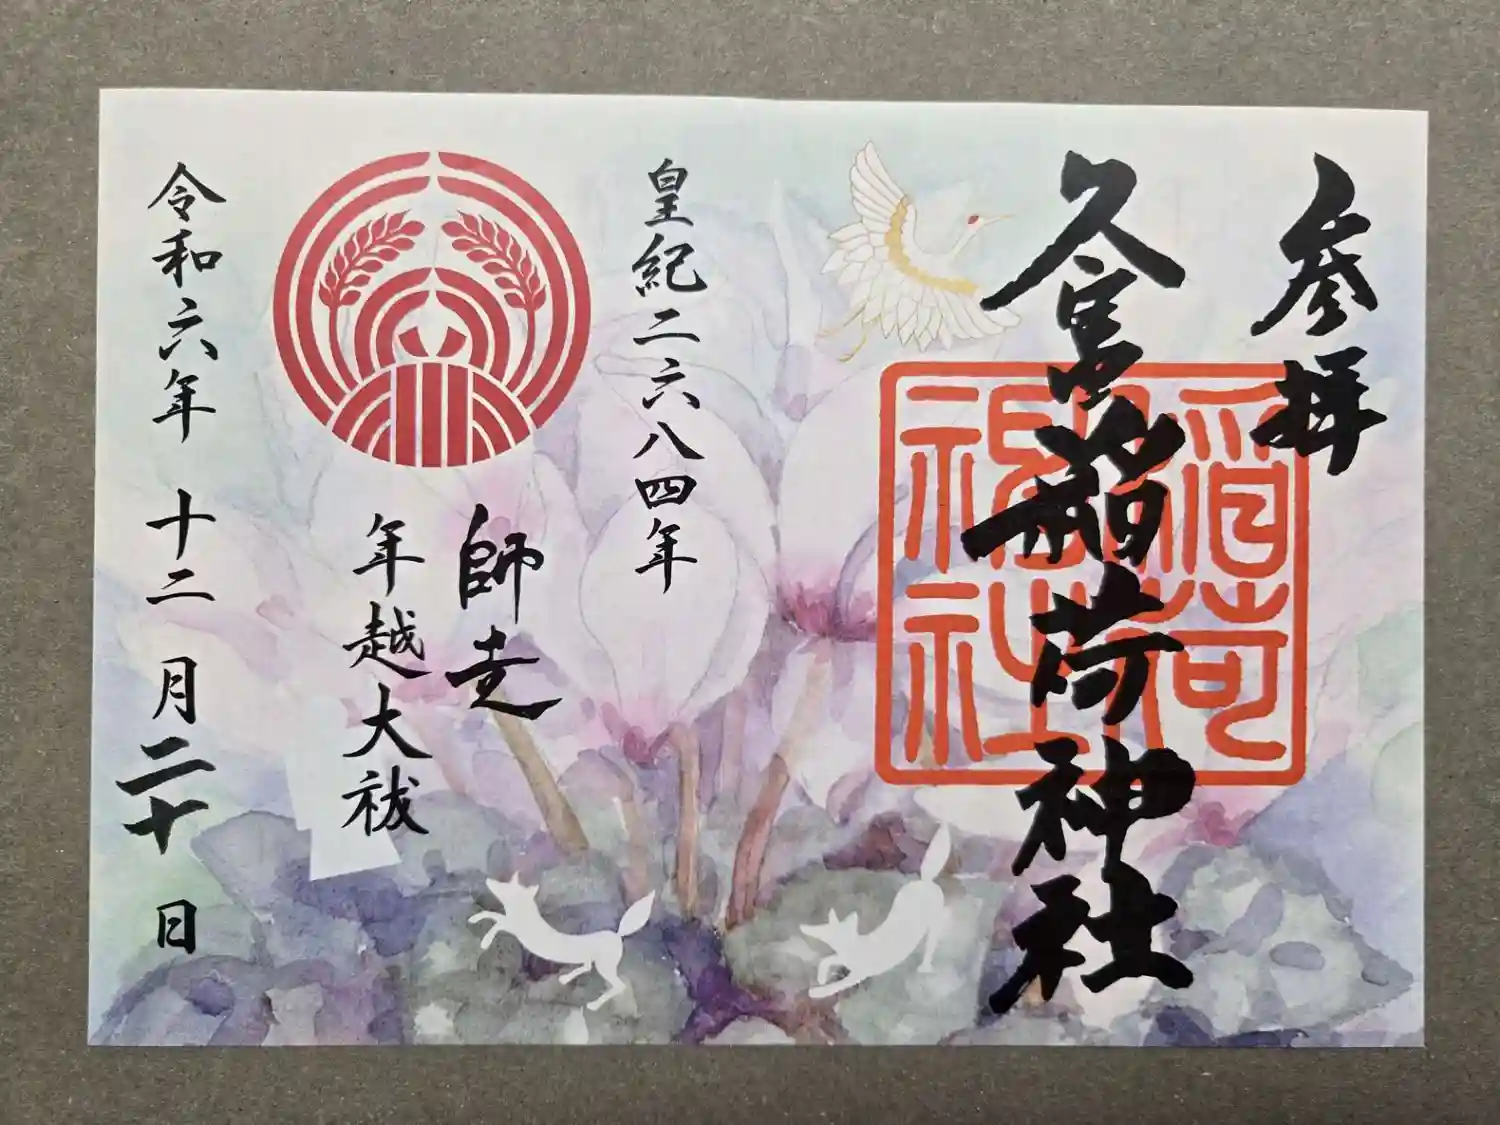 参拝
久富稲荷神社
稲荷
神社
皇紀二六八四年
師走
年越大祓
令和六年十二月二十日